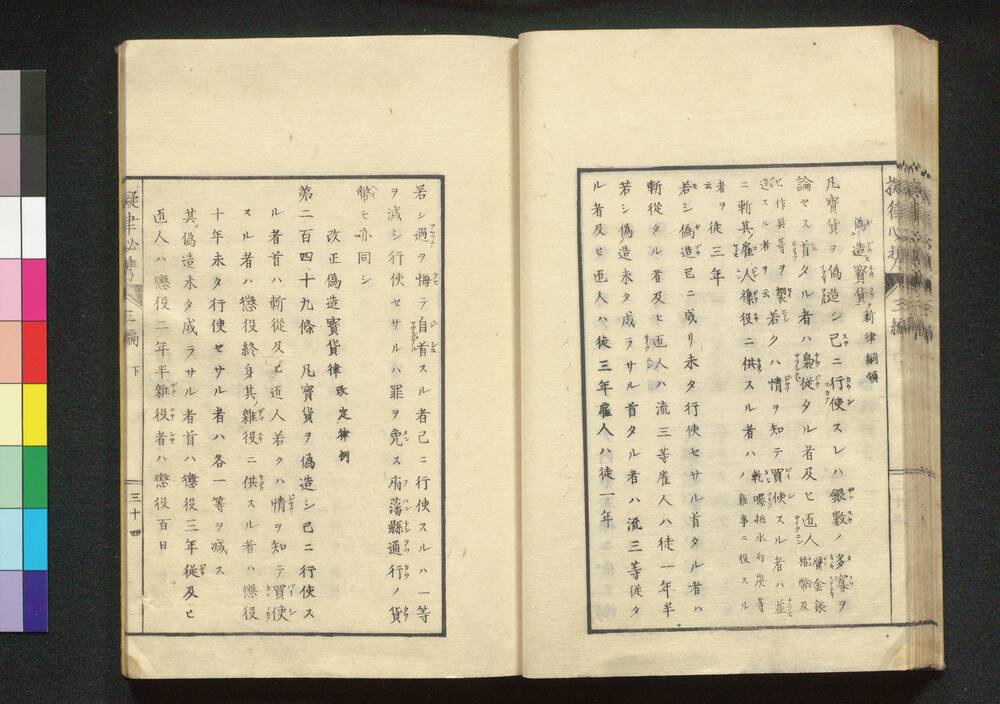 偽造寳貨 新律綱領
凡寳貨ヲ偽造シ已ニ行使スレハ銀數ノ多寡ヲ
論セス首タル者ハ梟從タル者及ヒ匠人
ヒ作具等ヲ製若クハ情ヲ知テ買使スル者ハ並
ニ斬其雇人雜役ニ供スル者ハ
者ヲ云 徒三年
若シ偽造已ニ成リ未タ行使セサル首タル者ハ
斬從タル者及ヒ匠人ハ流三等雇人ハ徒一年半
若シ偽造未タ成ラサル首タル者ハ流三等從タ
ル者及ヒ匠人ハ徒三年雇人ハ徒一年
若シ過ヲ悔テ自首スル者已ニ行使スルハ一等
ヲ減シ行使セサルハ罪ヲ免ス府藩縣通行ノ貨
幣モ亦同シ
改正偽造寳貨律 改定律例
第二百四十九條 凡寳貨ヲ偽造シ已ニ行使ス
ル者首ハ斬從及ヒ匠人若クハ情ヲ知テ買使
スル者ハ懲役終身其雜役ニ供スル者ハ懲役
十年未タ行使セサル者ハ各一等ヲ減ス
其偽造未タ成ラサル者首ハ懲役三年從及ヒ
匠人ハ懲役二年半雜役者ハ懲役百日
三編 下
三十四